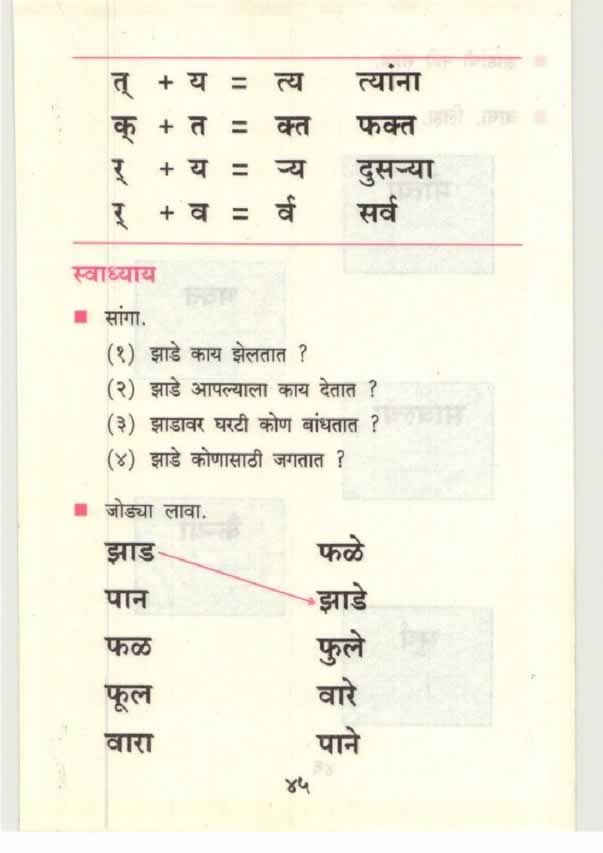 त् + य = त्य त्यांना
क् + त = क्त फक्त
र् + य = ऱ्य दुसऱ्या
र् + व = र्व सर्व
स्वाध्याय
सांगा.
(१) झाडे काय झेलतात ?
(२) झाडे आपल्याला काय देतात ?
(३) झाडावर घरटी कोण बांधतात ?
(४) झाडे कोणासाठी जगतात ?
जोड्या लावा.
झाड फळे
पान झाडे
फळ फुले
फूल वारे
वारा पाने
४५